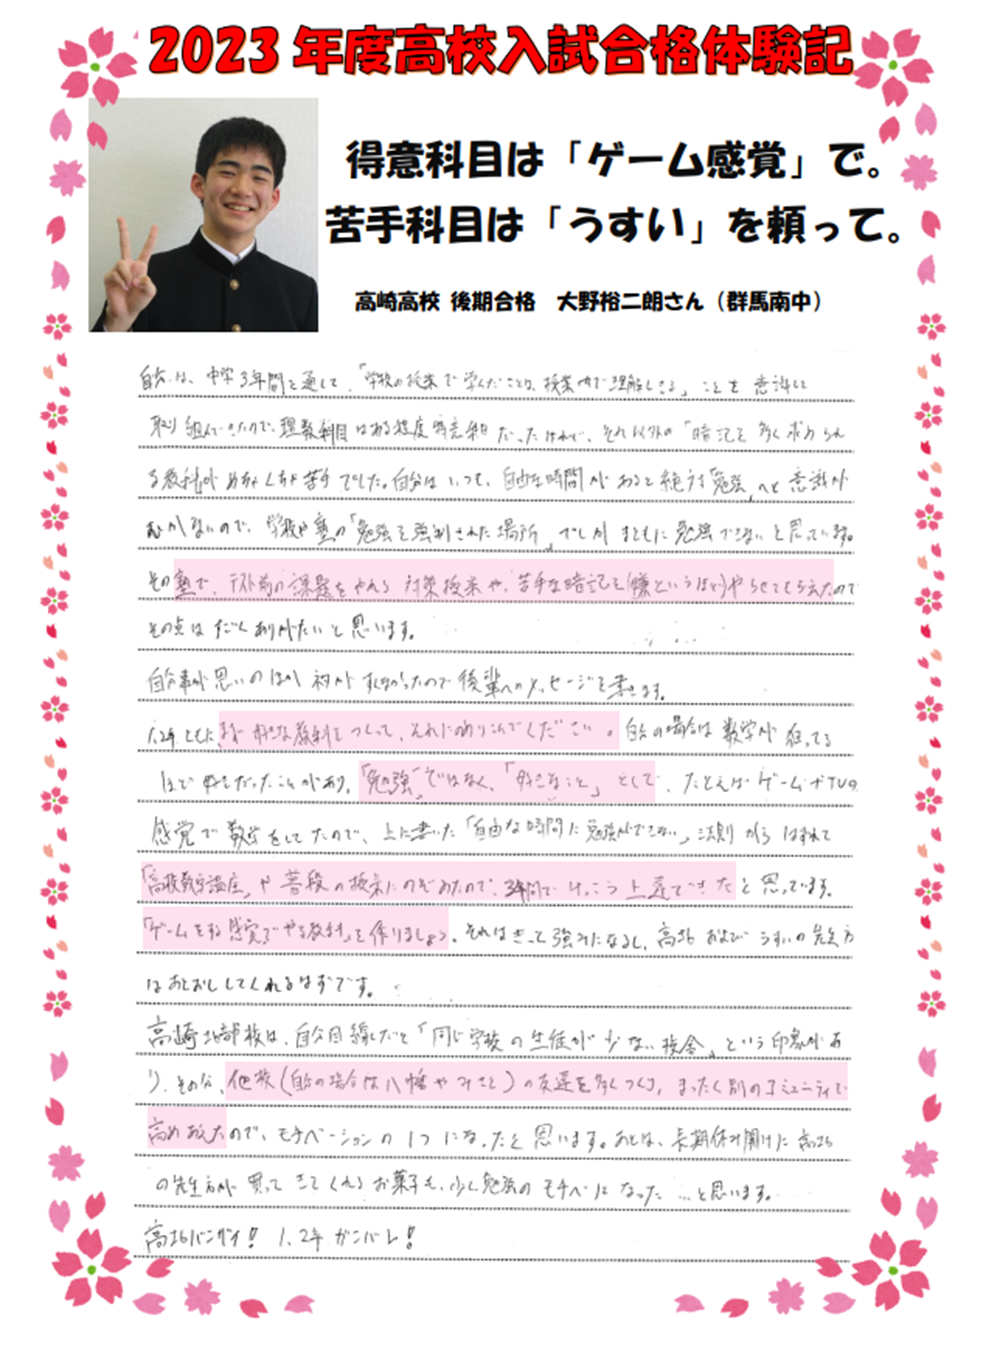 2023年度高校入試合格体験記
得意科目は「ゲーム感覚」で。
苦手科目は「うすい」を頼って。
高崎高校 後期合格 大野裕二朗さん（群馬南中）
自分は、中学3年間を通して、「学校の授業で学んだことは、授業内で理解しきる」ことを意識して
取り組んできたので、理数科目はある程度得意科目だったけれど、それ以外の「暗記を多く求められ
る教科がめちゃくちゃ苦手でした。自分はいつも、自由な時間があると絶対「勉強」へと意識が
むかないので、学校や塾の「勉強を強制された場所」でしかまともに勉強できないと思っています。
その塾で、テスト前の課題をやれる対策授業や、苦手な暗記を(嫌というほど)やらせてもらえたので
その点はだいぶありがたいと思います。
自分事が思いのほか神がすくなかったので後輩へのメッセージを書きます。
1,2年ともに、まず好きな教科をつくって、それにのめりこんでください。自分の場合は数学が狂ってる
ほど好きだったことがあり、「勉強」ではなく、「好きなこと」として、たとえばゲームやTVの
感覚で数学をしてたので、上に書いた「自由な時間に勉強ができない」法則からはずれて
「高校数学講座」や普段の授業にのぞめたので、3年間でけっこう上達できたと思っています。
「ゲームをする感覚でやる教科」を作りましょう。それはきっと強みになるし、高北およびうすいの先生方
はあとおししてくれるはずです。
高崎北部校は、自分目線だと「同じ学校の生徒が少ない校舎」という印象があ
り、その分、他校(自分の場合は八幡やみさと)の友達を多くつくり、まったく別のコミュニティで
高めあえたので、モチベーションの1つになったと思います。あとは、長期休み開けに高北
の先生方が買ってきてくれるお菓子も、少し勉強のモチベになった…と思います。
高北バンザイ! 1、2年ガンバレ!